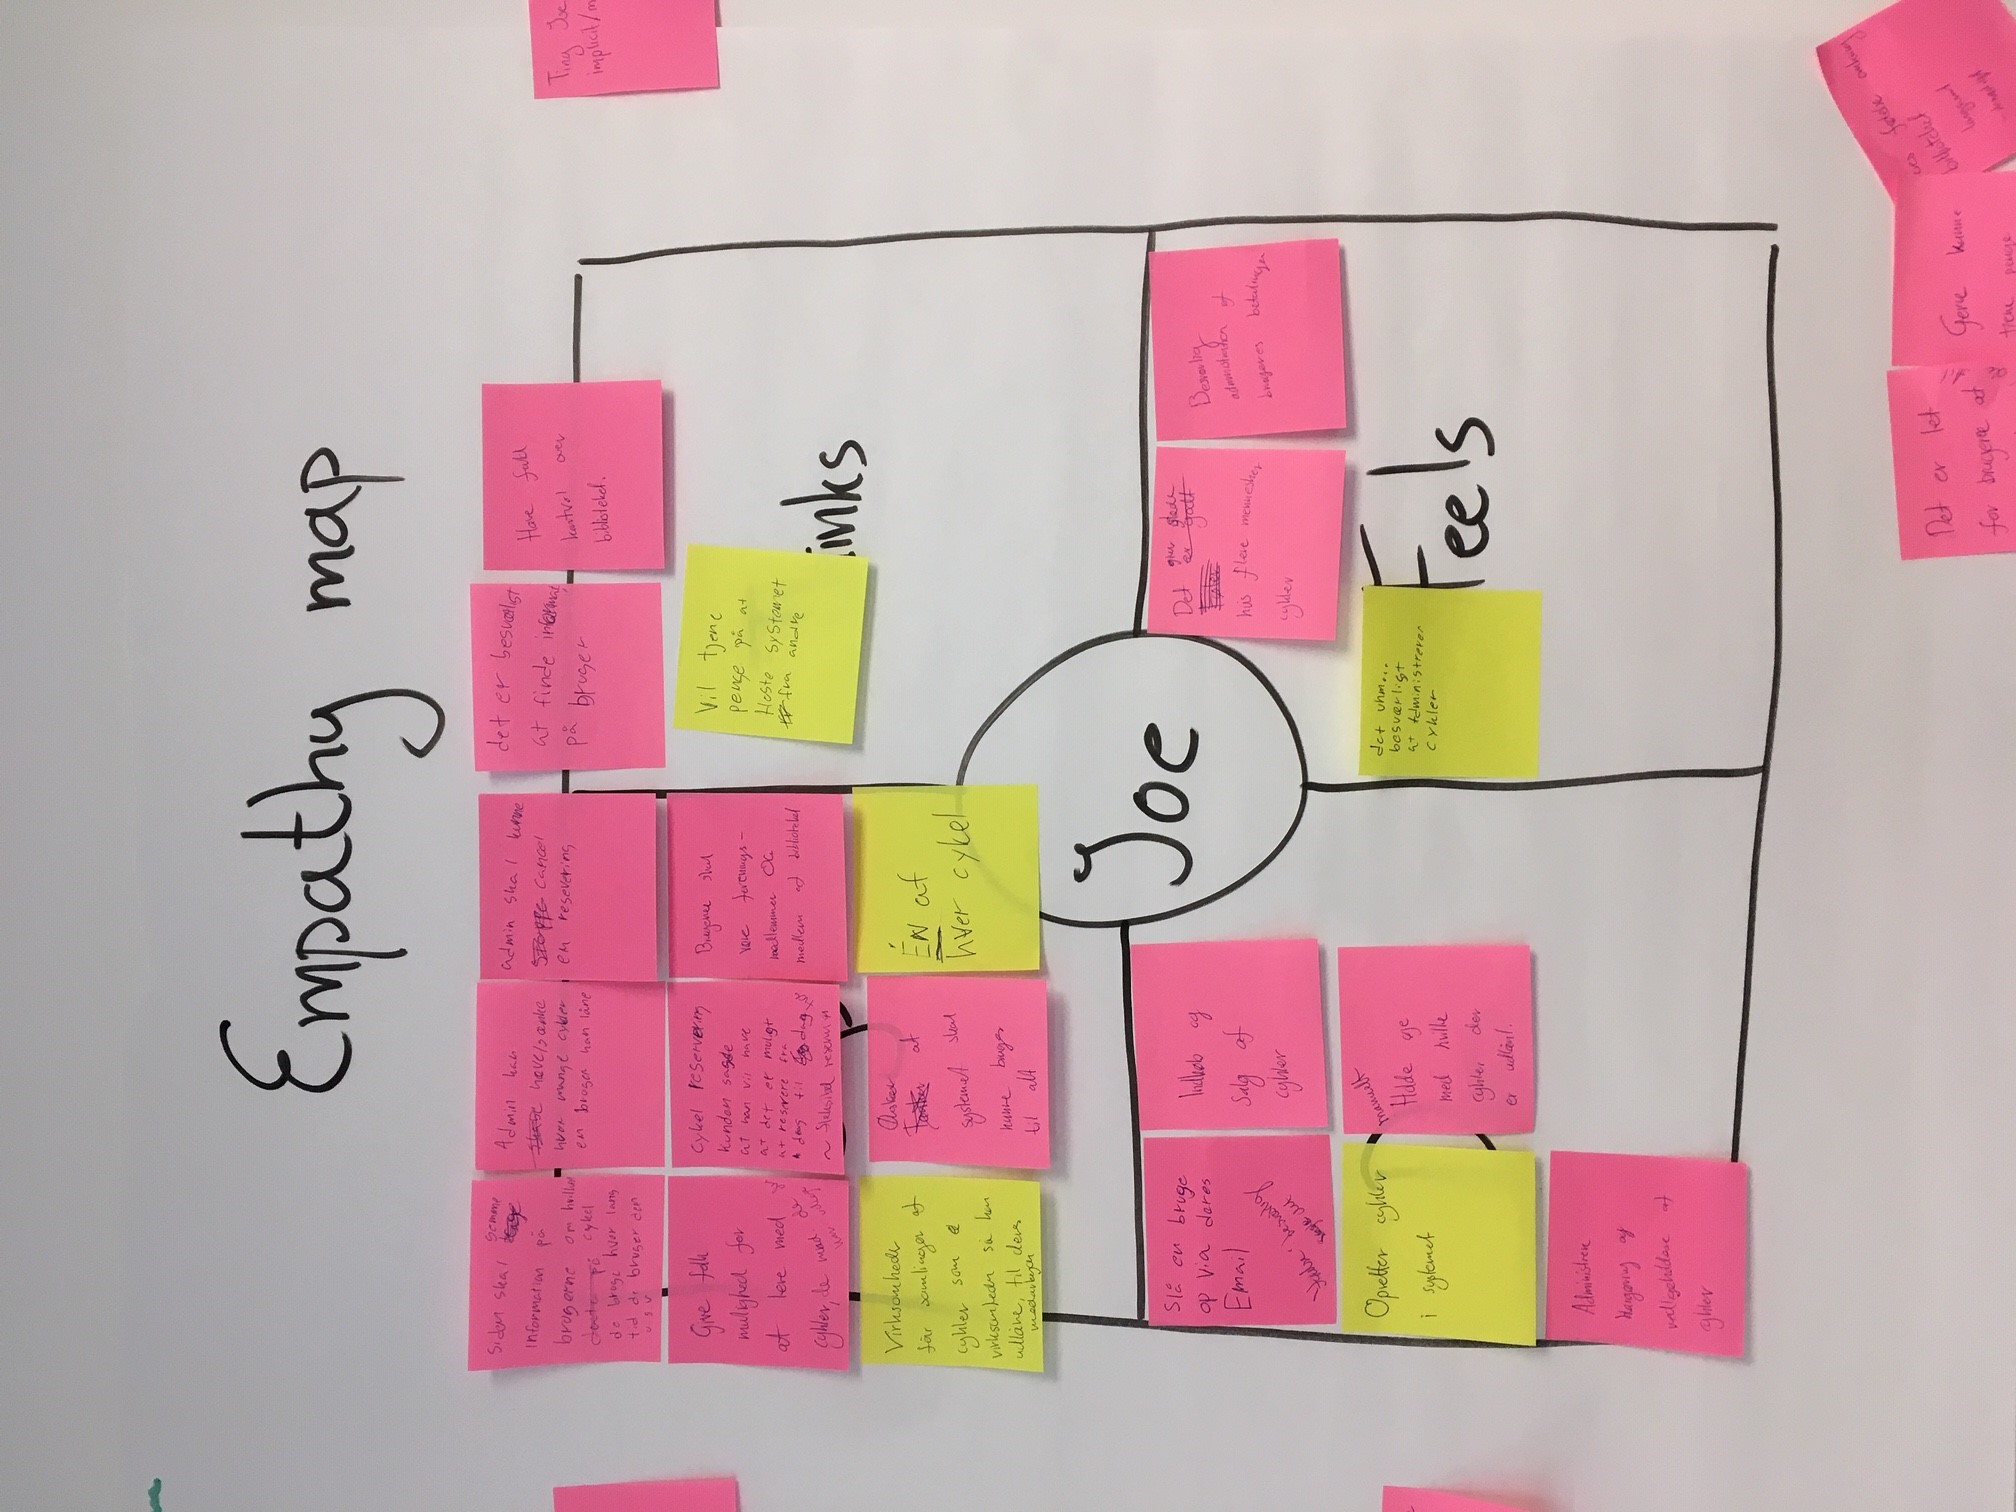 Empathy map
Siden skal gemme
information på
brugerne om hvilken
cykel
de bruge hvor lang
tid de bruger den
o.s.v
Admin kan
hæve/sænke
hvor mange cykler
en bruger kan låne
admin skal kunne
cancel
en resevering
det er besværligt
at finde informat
på bruger
Have fuld
kontrol over
biblioteket.
Give folk
mulighed for
at leve med
cykler, de
Cykel reservering
kunden sagde
at han vil have
at det er muligt
at reservere fra
dag til dag
~ fleksibel
Brugerne skal
være forenings-
medlemmer OG
medlem af bibliotekel
Vil tjene
penge på at
Hoste systemet
fra andre
inks
Virksomheder
får samlinger af
cykler som
virksomheden så kan
udlåne, til deres
Ønsker
at
systemet skal
kunne bruges
til alt
ÉN af
hver cykel
Joe
Slå en bruge
op via deres
Email
besværlig
Indkøb og
Salg af
cykler
Det giver glæde
er godt
hvis flere mennesker
cykler
Besværlig
administration af
brugeres betalinger
Opretter cykler
i systemet
manuelt
Holde øje
med hvilke
cykler der
er udlånt.
det uhm...
besværligt
at administrerer
cykler
Feels
Administrere
klargøring og
vedligeholdelse af
cykler
Ting Joe
implicit/m
Det er let
for brugerne at
Gerne kunne
tjene penge
bibliotekel